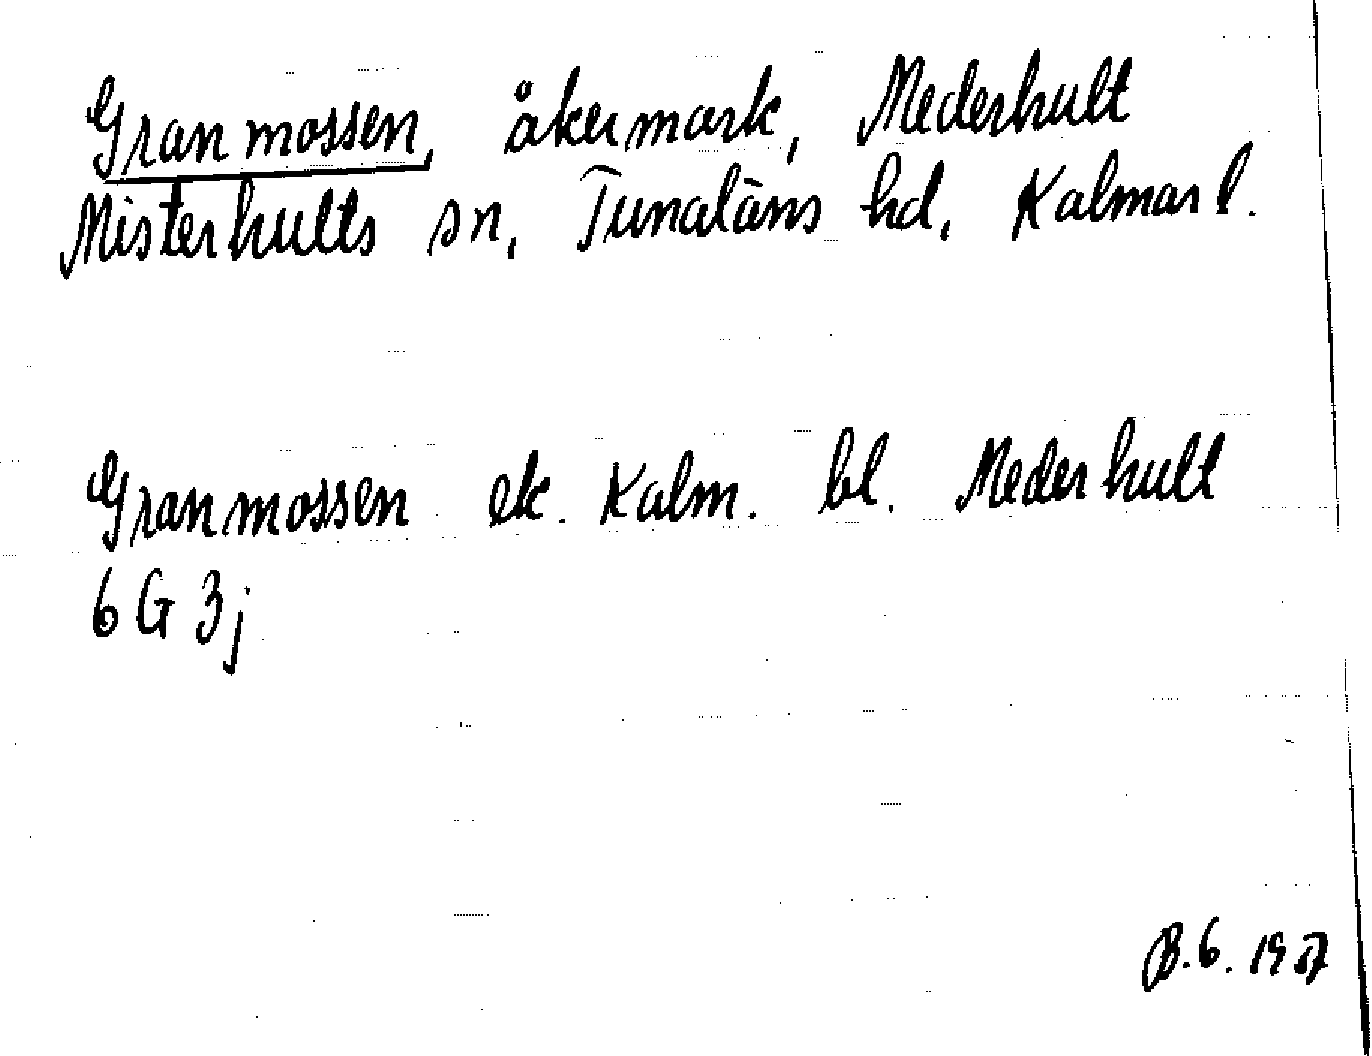 Granmossen, åkermark, Mederhult
Misterhults sn, Tunaläns hd, Kalmar l.
Granmossen ek. Kalm. bl. Mederhult
6 G 3j
B.G. 1957